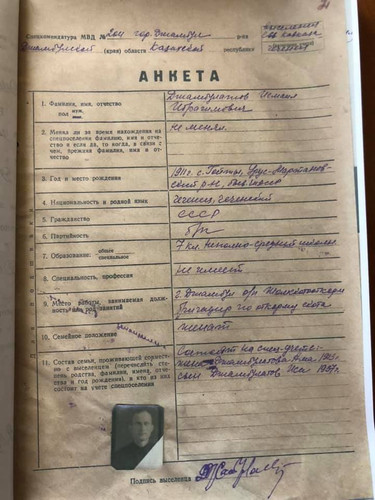 Спецкомендатура МВД № 204 гор. Джамбул р-на
Джамбулской (края) области Казахской республики
АНКЕТА
1. Фамилия, имя, отчество
пол муж. жен.
Джамбулатов Исмаил
Ибрагимович
2. Менял ли за время нахождения на
спецпоселении фамилию, имя и отче-
ство и если да, то когда, в связи с
чем, прежняя фамилия, имя и от-
чество
не менял.
3. Год и место рождения
1911г. с. Гойты, Урус-Мартанов-
ский р-н,
4. Национальность и родной язык
чеченец, чеченский
5. Гражданство
СССР
6. Партийность
б/п
7. Образование: общее
специальное
7 кл. неполно-средней школы
8. Специальность, профессия
не имеет
9. Место работы, занимаемая долж-
ность или род занятий
г. Джамбул
Бригадир по откорму скота
10. Семейное положение
женат
11. Состав семьи, проживающей совместно
с выселенцем (перечислить сте-
пень родства, фамилия, имена, отче-
ства и год рождения), и кто из них
состоит на учете спецпоселения
Состоят на спец-учете:
жена Джамбулатова
сын Джамбулатов Иса
Подпись выселенца